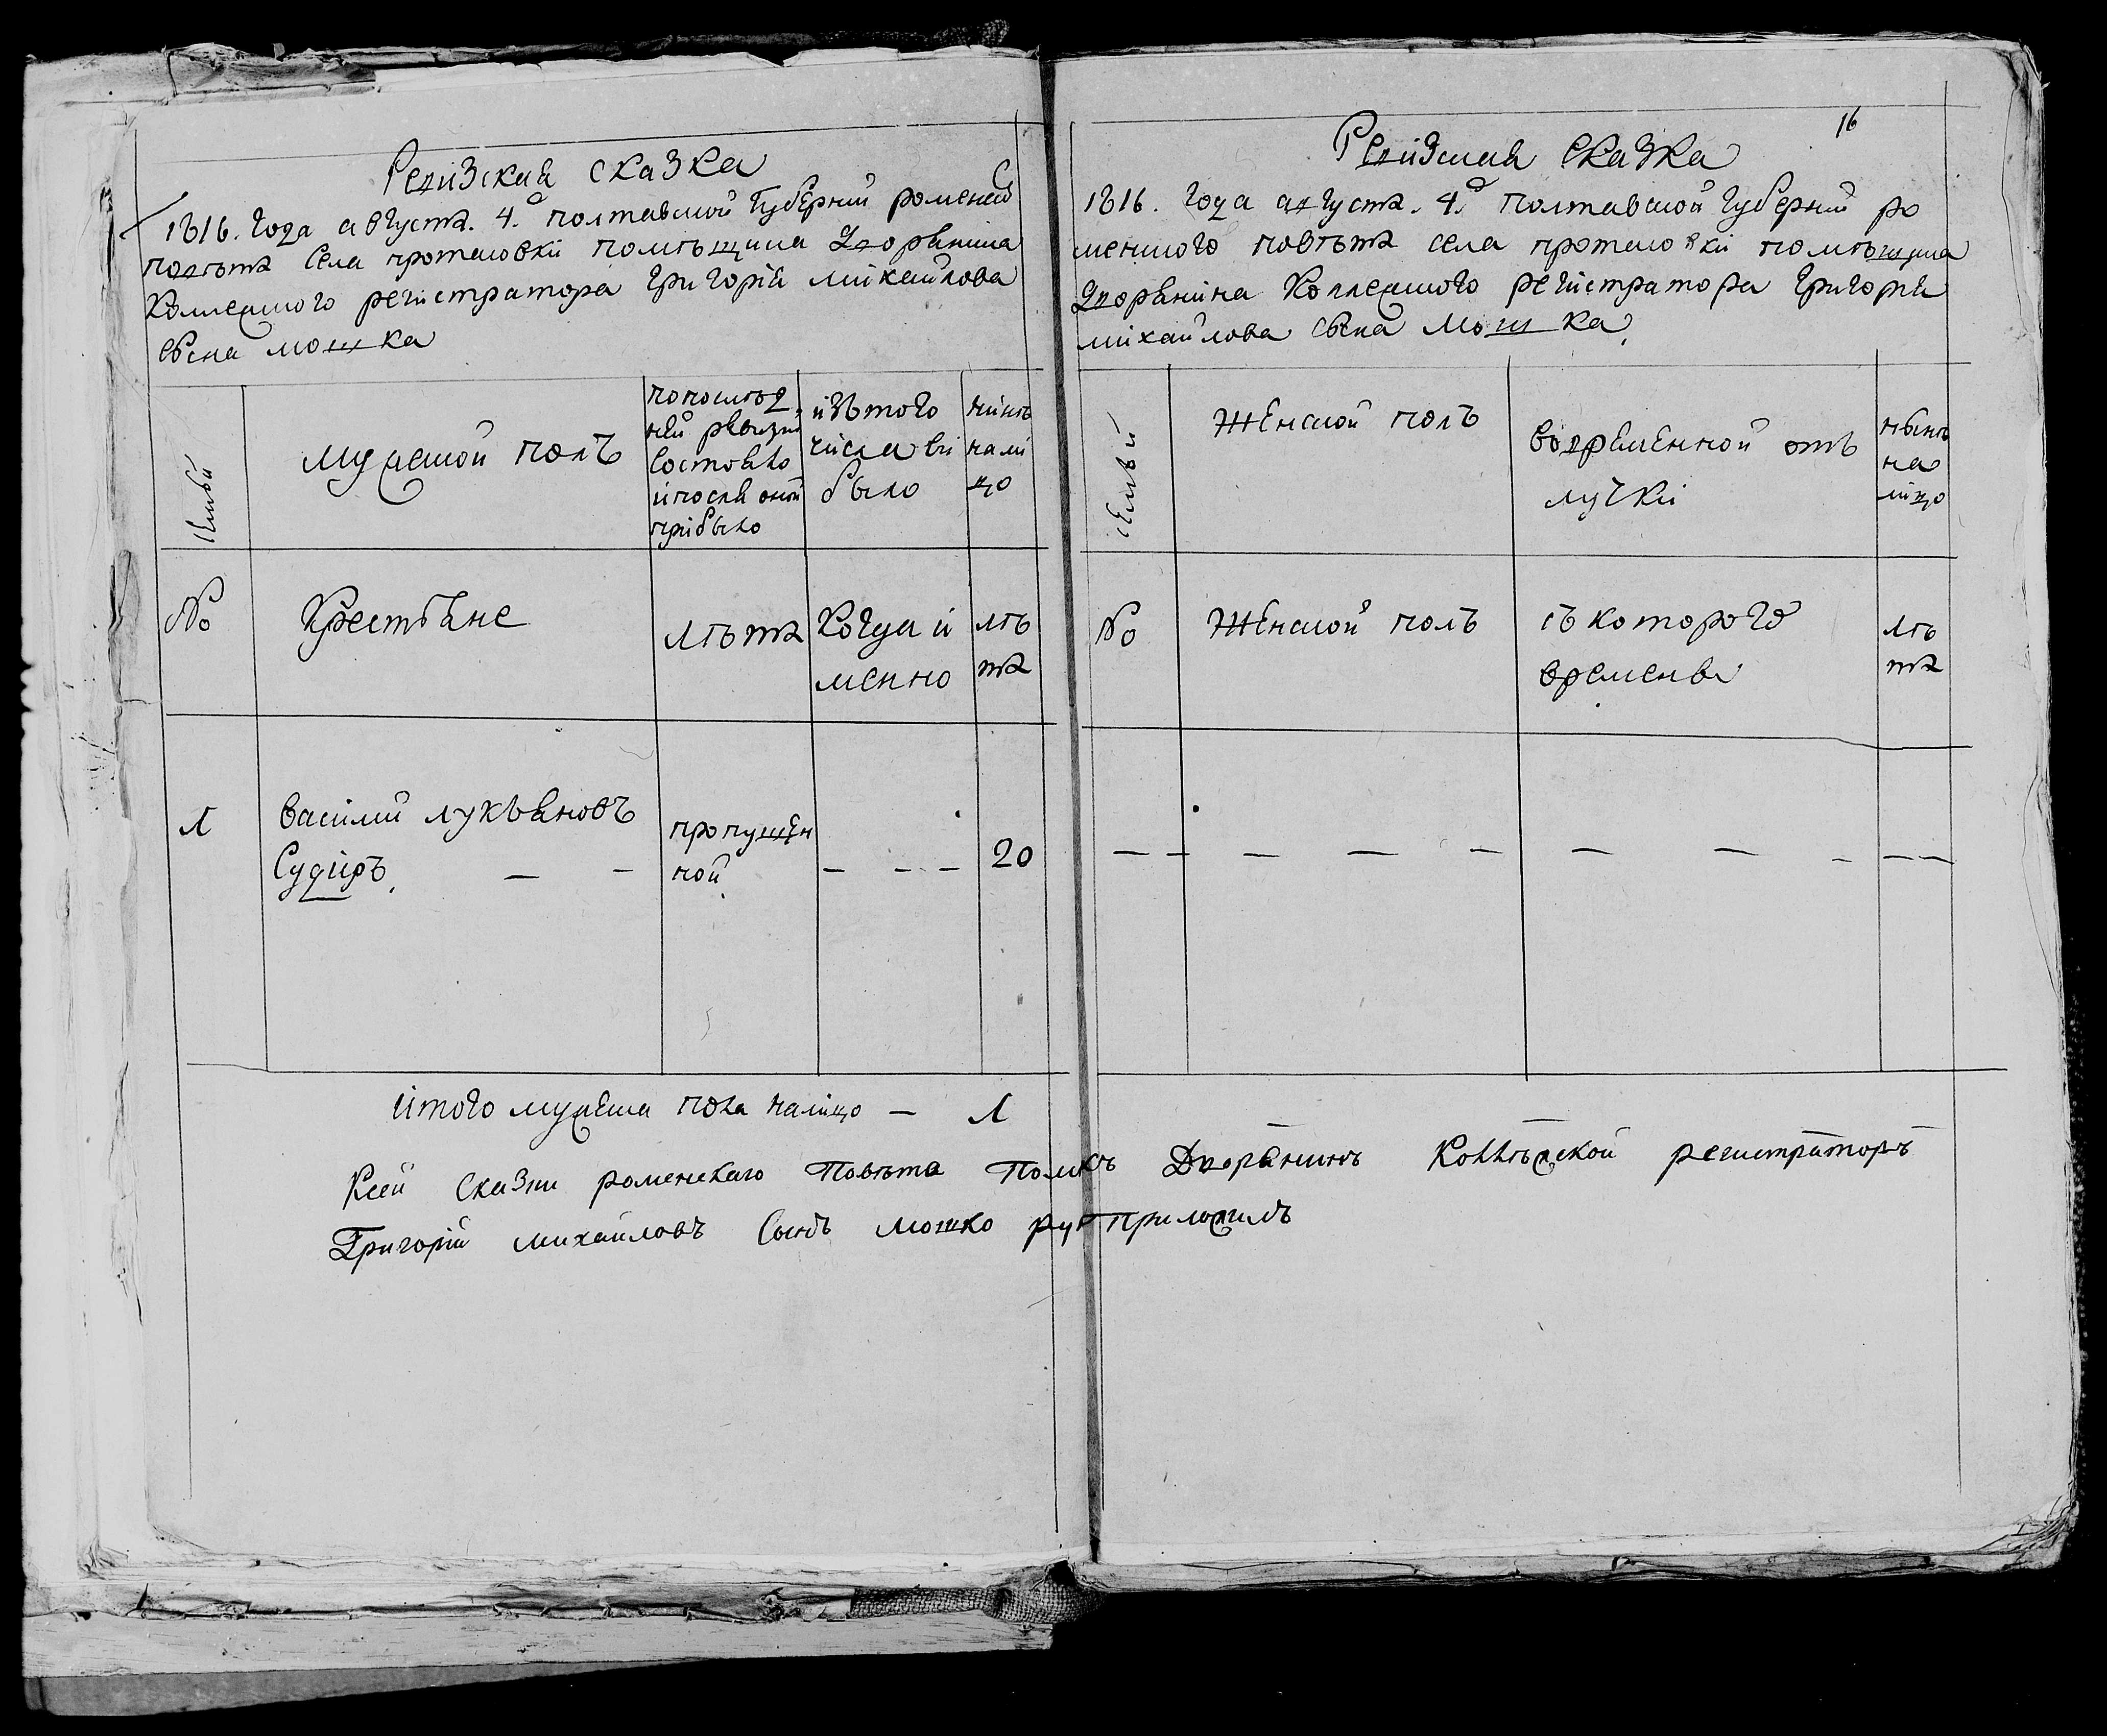 Ревизская сказка
1816. года августа. 4.д полтавской губернии роменск
повѣта села протасовки помѣщика дворянина
Коллежского регистратора григорія міхайлова
сына мошка
семьи
мужеской полъ
по послѣд
ней ревизіи
состояло
и после оной
прибыло
изъ того
числа ви
было
нинѣ
на ли
цо
№
Крестьяне
лѣта
Когда и
менно
лѣ
та
1
василий лукьяновъ
Судиръ. — —
пропущен
ной.
— — —
20
итого мужеска пола налицо — 1
16
Ревизская сказка
1816. года августа. 4.д Полтавской губерний ро
менского повѣта села протасовки помѣщика
дворянина Коллежского регистратора григорія
міхайлова сына мошка.
семьи
Женской полъ
во временной отъ
лучки
нынѣ
на
лицо
№
Женской полъ
съ которого
времени
лѣ
та
— — — — — — — — — —
К сей сказки роменскаго Повѣта Помкъ Дворянинъ Коллѣжской регистраторъ
Григорій михайловъ Сынъ мошко рук приложилъ